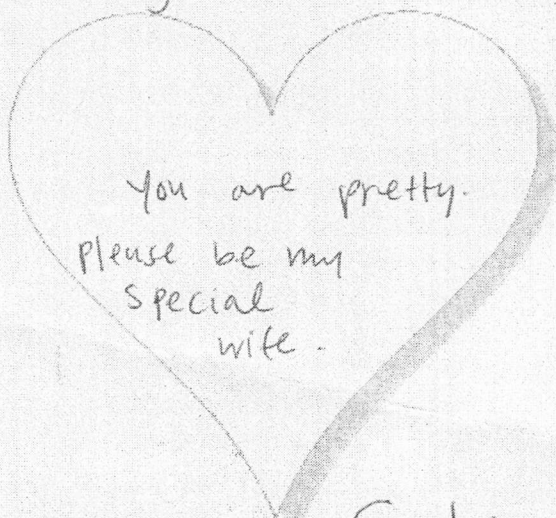 You are pretty.
please be my
special
wife.